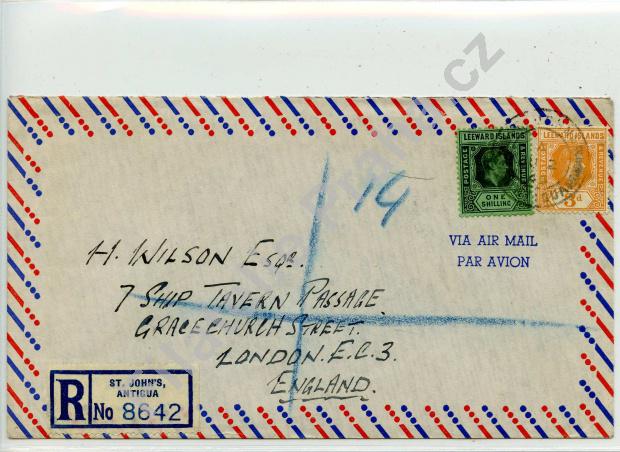 LEEWARD ISLANDS
POSTAGE
& REVENUE
ONE
SHILLING
LEEWARD ISLANDS
POSTAGE
& REVENUE
3d
14
VIA AIR MAIL
PAR AVION
H. WILSON ESQR.
7 SHIP TAVERN PASSAGE.
GRACECHURCH STREET.
LONDON. E.C. 3.
ENGLAND.
R
ST. JOHN'S,
ANTIGUA
No 8642